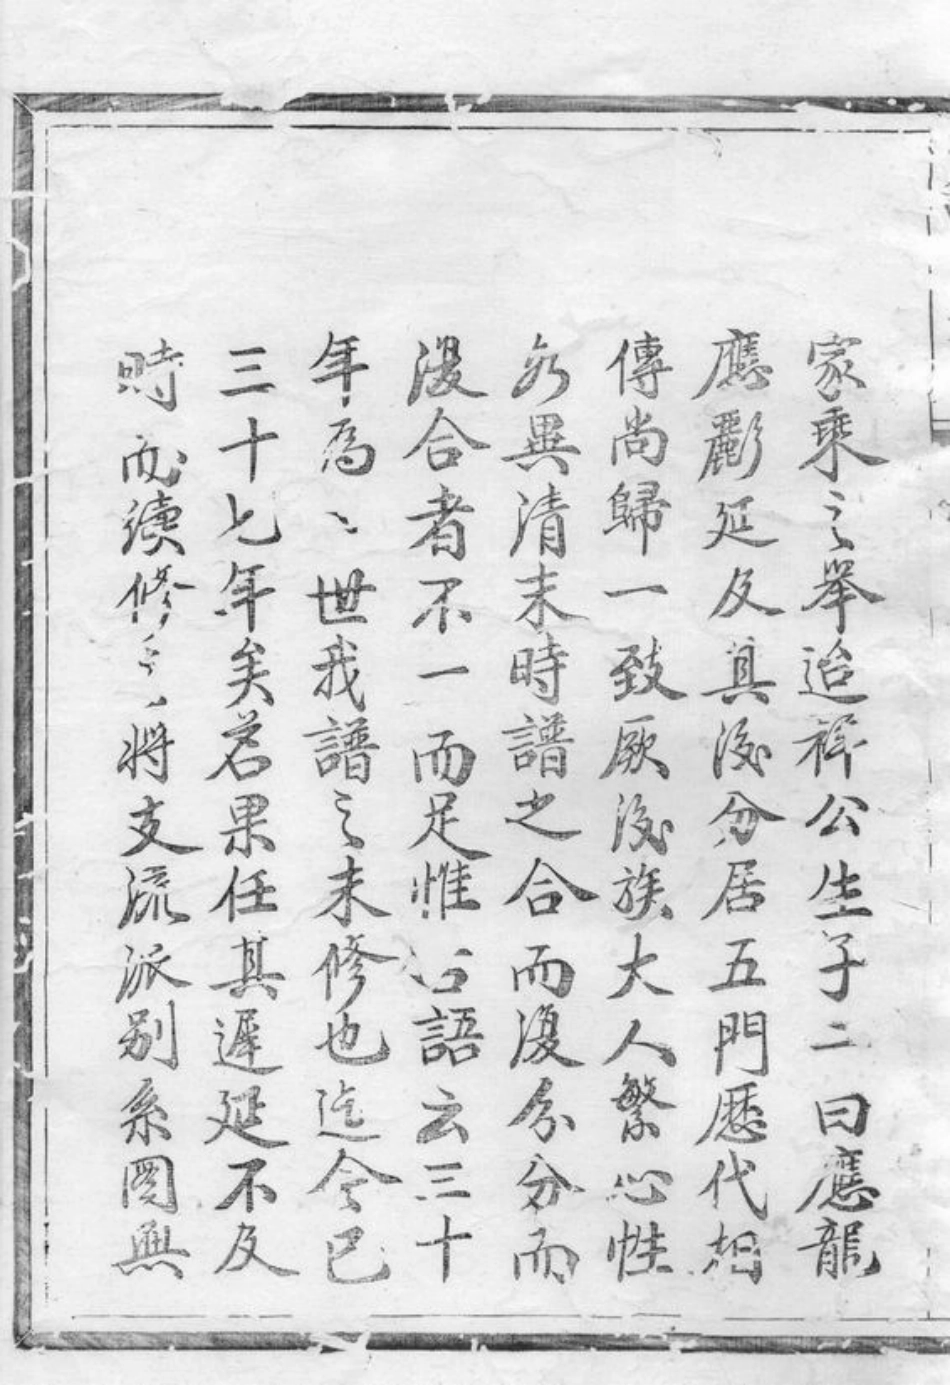 家乘之舉迨祥公生子二曰應龍
應彲延及其後分居五門歷代相
傳尚歸一致厥後族大人繁心性
各異清末時譜之合而復分分而
復合者不一而足惟古語云三十
年為一世我譜之未修也迄今已
三十七年矣若果任其遲延不及
時而續修之將支流派别系圖無